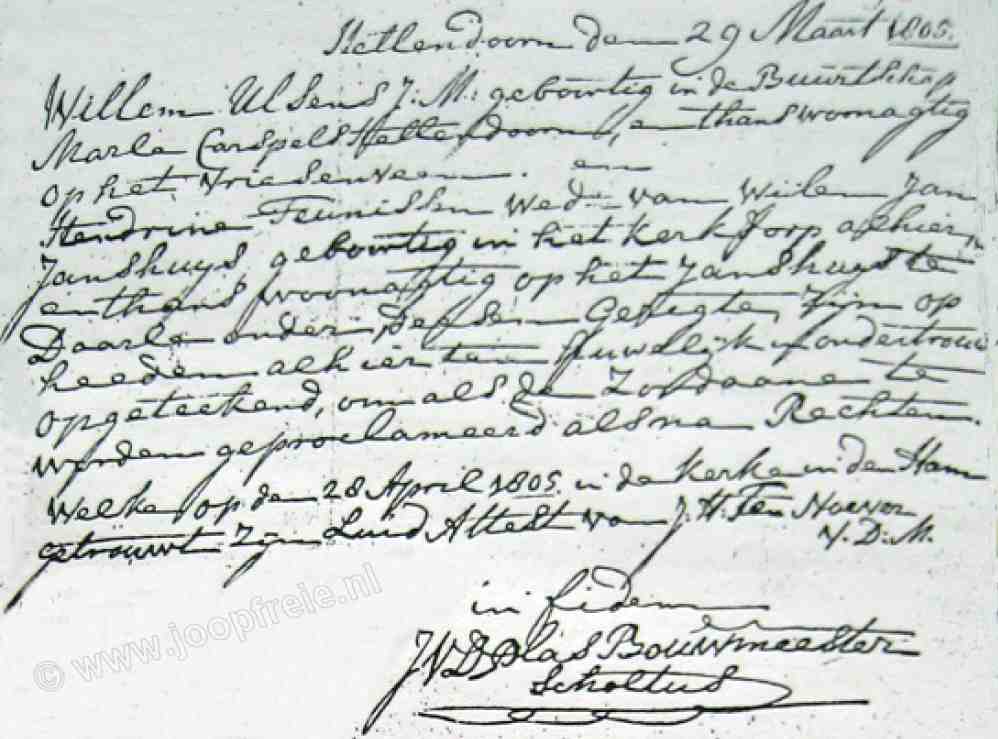 Hellendoorn den 29 Maart 1805.
Willem Ulsens J.M: geboortig in de Buurtschap
Marle Carspels Hellendoorn, en thans woonagtig
op het Vriesenveen. en
Hendrine Teunissen Wed: van Wilen Jan
Janshuys geboortig in het kerkdorp alhier,
en thans woonagtig op het Janshuys te
Daarle onder desen Gerigte, Zijn op
heeden alhier ten Huwelijk in ondertrouw
opgeteekend, om als de Zondaane te
worden geproclameerd als na Rechten.
Welke op den 28 April 1805 in de kerke in den Ham
getrouwt Zijn Luid Attest van J.H. Ten
V.D.M.
in fidem
JVD Plas Bouwmeester
Scholtus
© www.joopfreie.nl